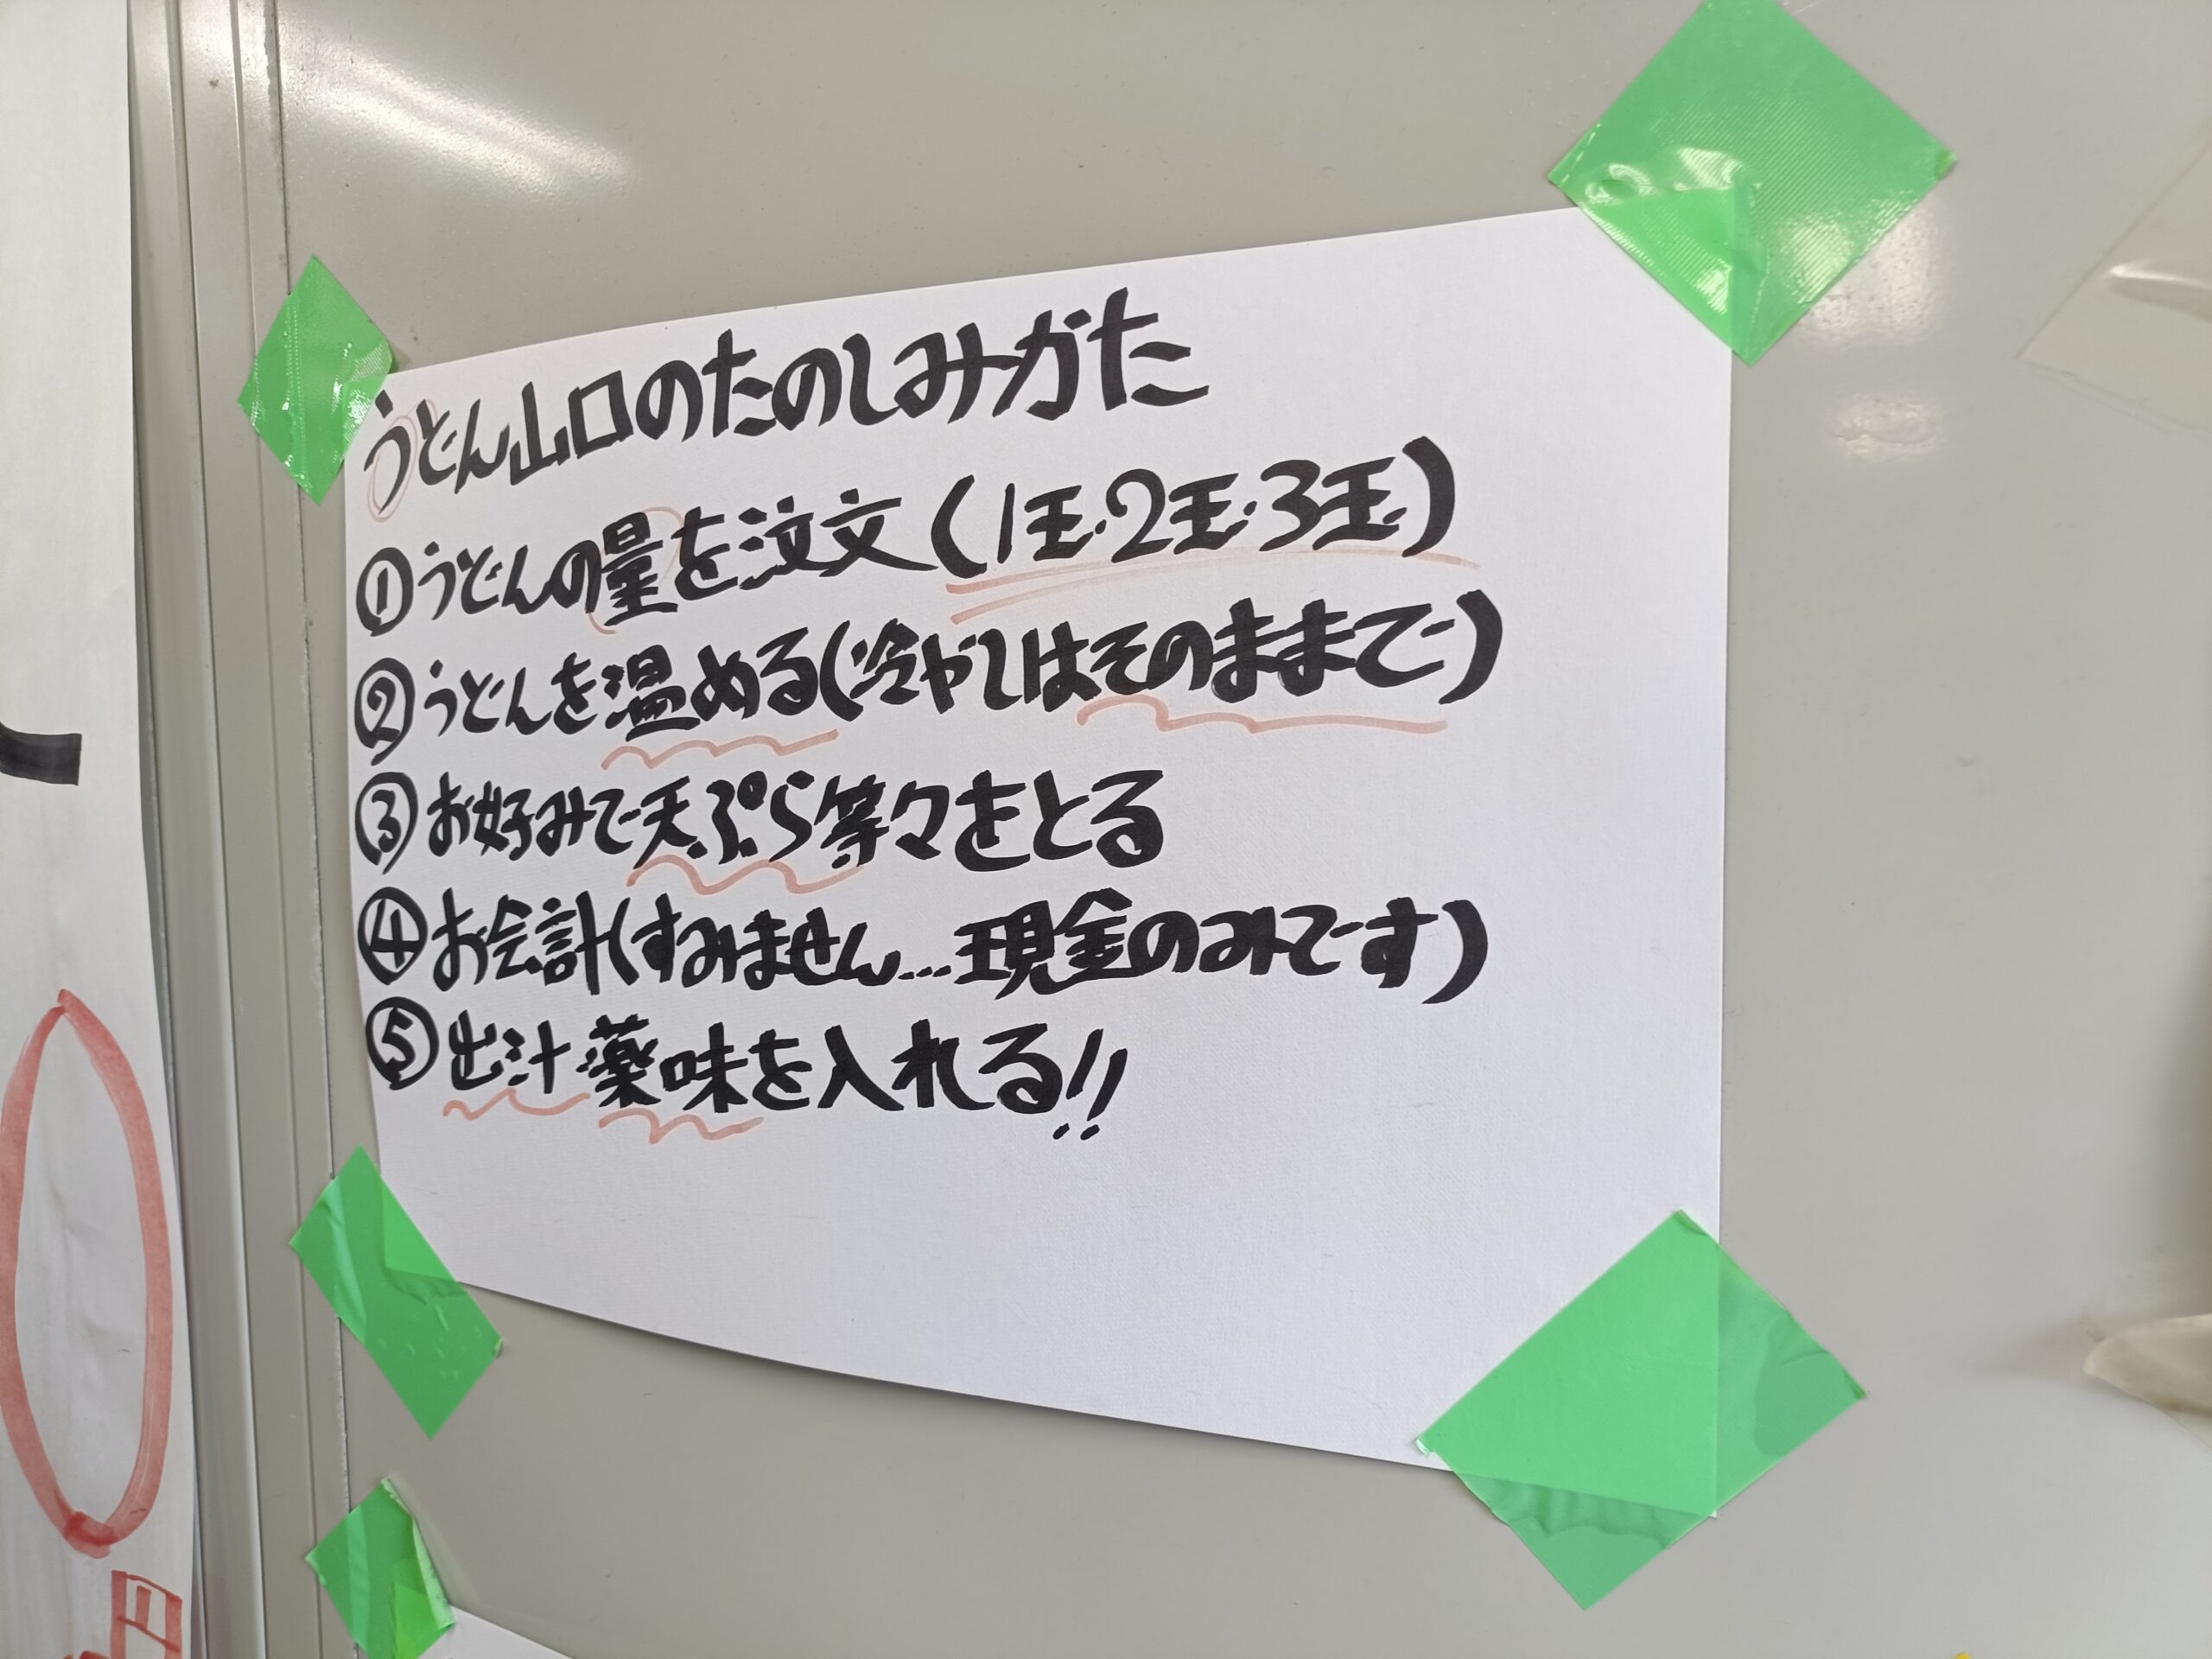 うどん山口のたのしみがた
①うどんの量を注文(1玉・2玉・3玉)
②うどんを温める(冷やしはそのままで)
③お好みで天ぷら等々をとる
④お会計(すみません…現金のみです)
⑤出汁・薬味を入れる!!